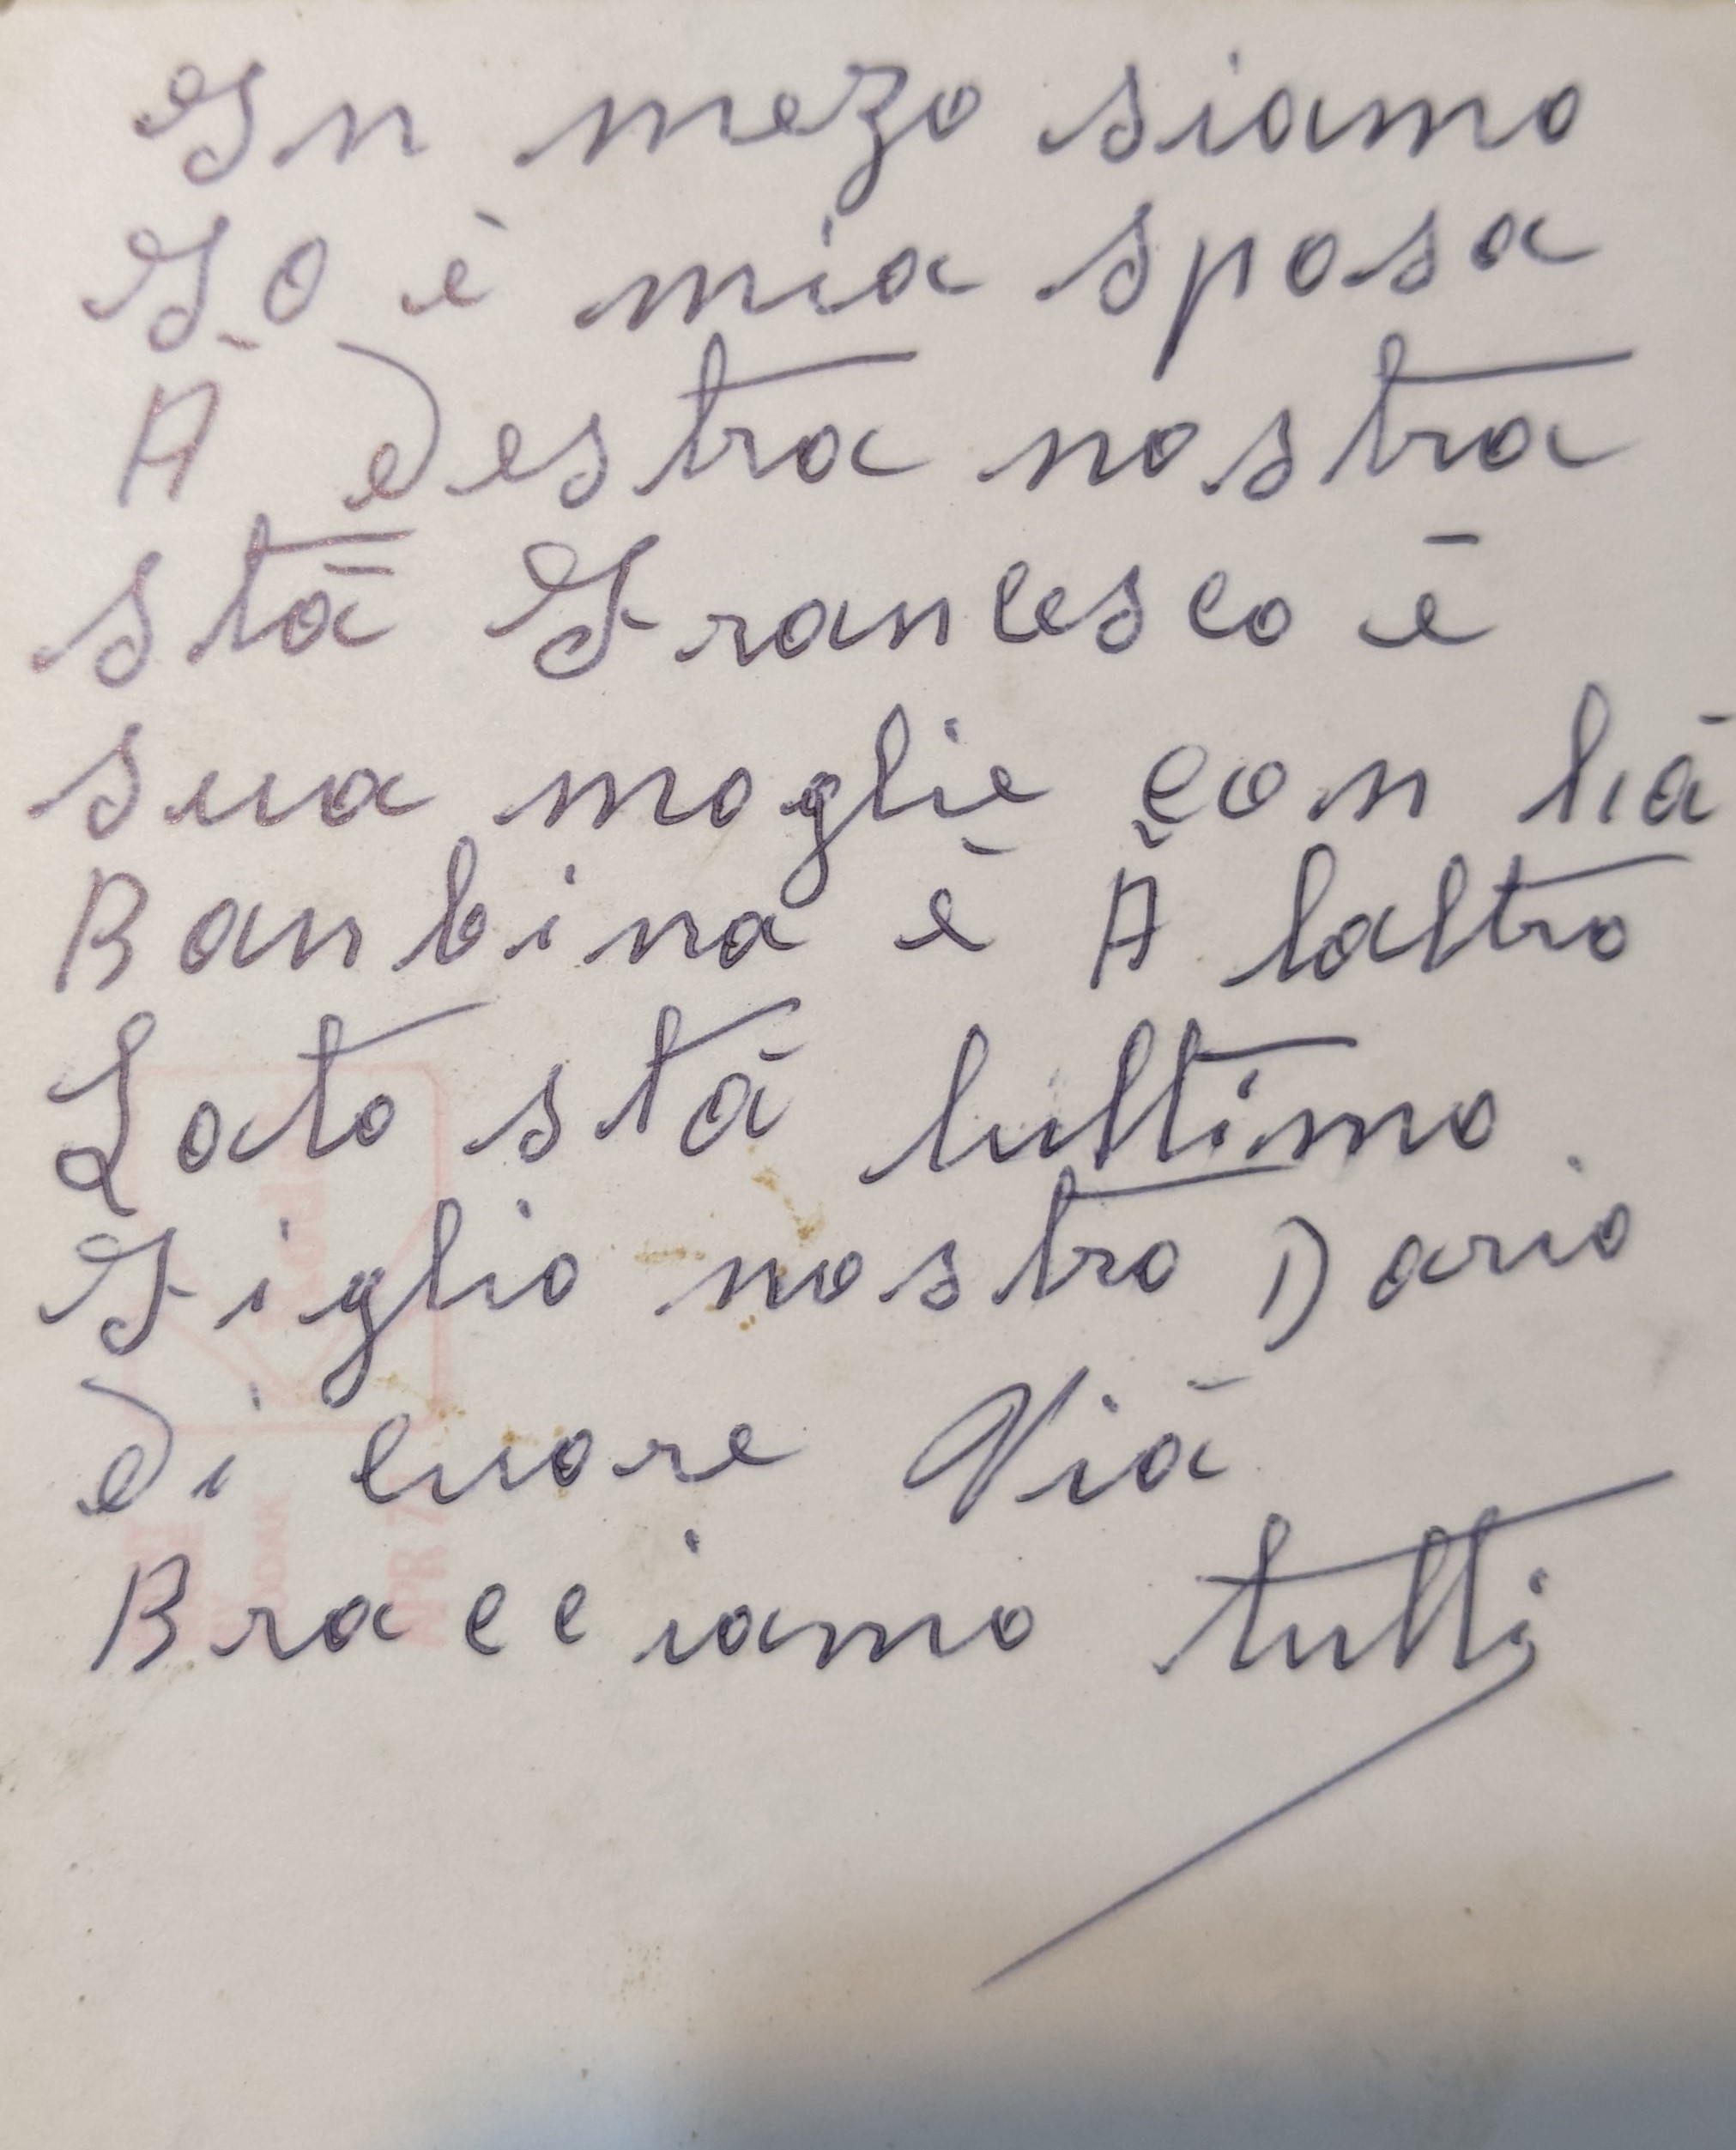 In mezo siamo
Io è mia sposa
A destra nostra
stà Francesco è
sua moglie con lià
Banbina è A laltro
Lato stà lultimo
Figlio nostro Dario
di cuore Vià
Bracciamo tutti